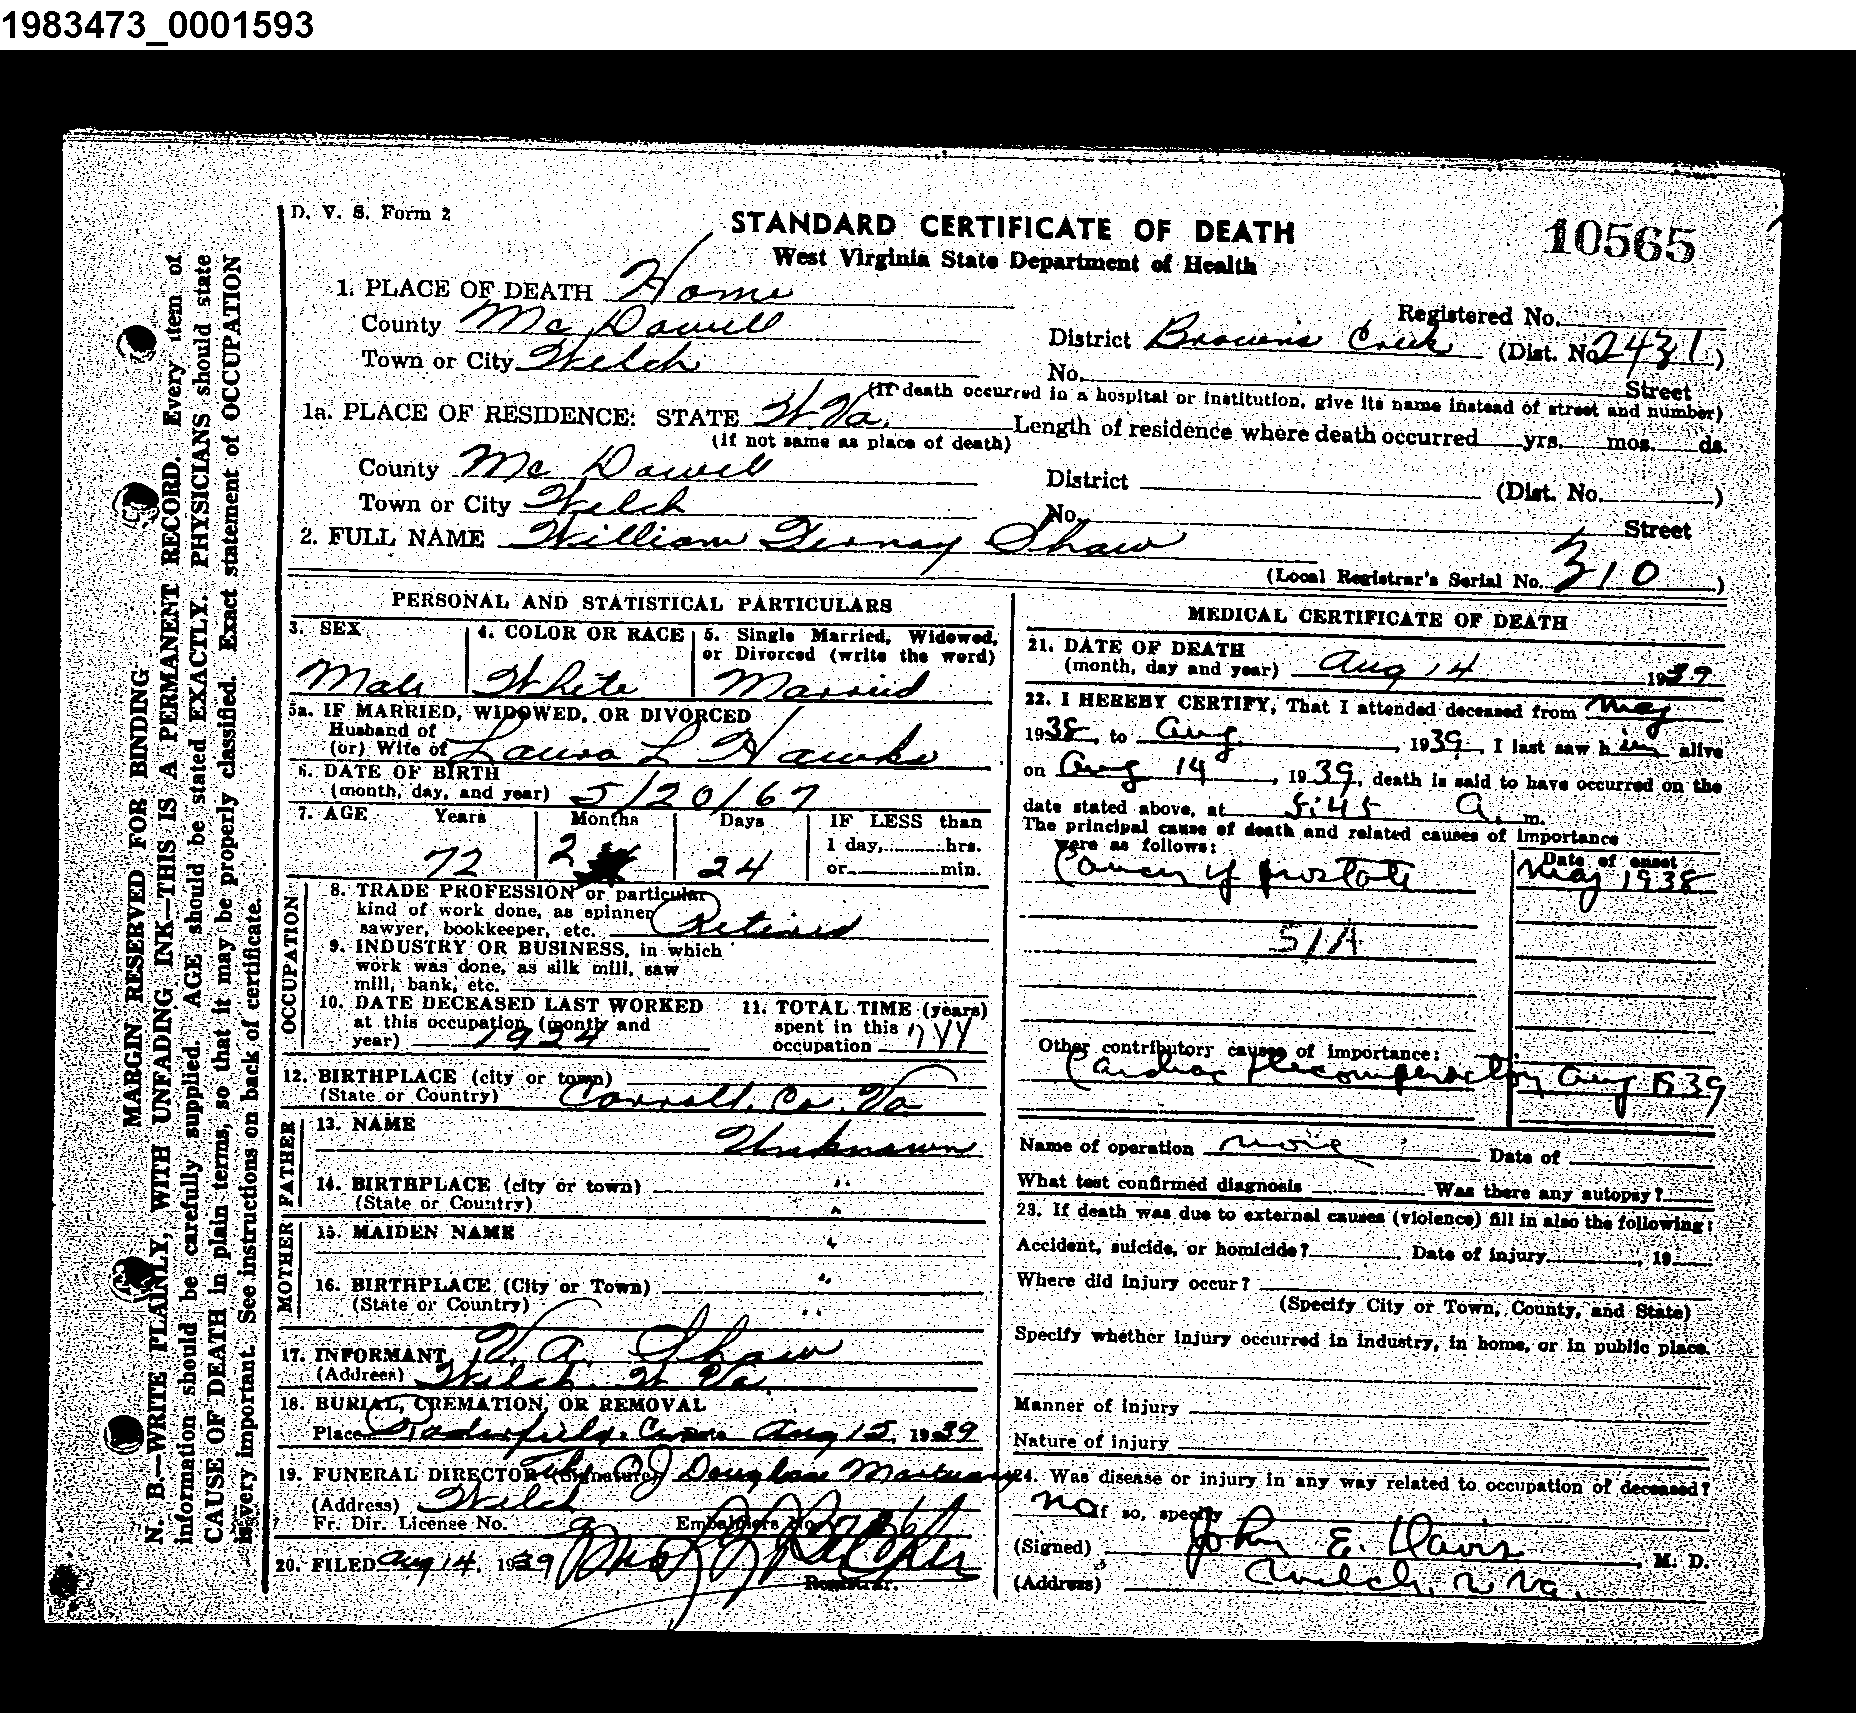 1983473_0001593
D. V. S. Form 2
STANDARD CERTIFICATE OF DEATH
10565
West Virginia State Department of Health
1. PLACE OF DEATH Home
Registered No.
County Mc Dowell
District Browns Creek (Dist. No. 2431)
Town or City Welch
No. Street
(If death occurred in a hospital or institution, give its name instead of street and number)
1a. PLACE OF RESIDENCE: STATE W. Va. Length of residence where death occurred yrs. mos. ds.
(If not same as place of death)
County Mc Dowell
District (Dist. No. )
Town or City Welch
No. Street
2. FULL NAME William Shaw
(Local Registrar's Serial No. 310 )
PERSONAL AND STATISTICAL PARTICULARS
3. SEX
4. COLOR OR RACE
5. Single Married, Widowed, or Divorced (write the word)
Male White Married
5a. IF MARRIED, WIDOWED, OR DIVORCED
Husband of
(or) Wife of Laura L Hawks
6. DATE OF BIRTH
(month, day, and year) 5/20/67
7. AGE Years Months Days IF LESS than
1 day, hrs.
72 2 24 or min.
OCCUPATION
8. TRADE PROFESSION or particular
kind of work done, as spinner
sawyer, bookkeeper, etc. Retired
9. INDUSTRY OR BUSINESS, in which
work was done, as silk mill, saw
mill, bank, etc.
10. DATE DECEASED LAST WORKED
at this occupation (month and
year) 1934
11. TOTAL TIME (years)
spent in this
occupation
12. BIRTHPLACE (city or town)
(State or Country) Carroll. Co. Va
FATHER
13. NAME Unknown
14. BIRTHPLACE (city or town) "
(State or Country) "
MOTHER
15. MAIDEN NAME "
16. BIRTHPLACE (City or Town) "
(State or Country) "
17. INFORMANT Shaw
(Address) Welch. W Va
18. BURIAL, CREMATION, OR REMOVAL
Place Aug 15, 1939
19. FUNERAL DIRECTOR (Signature) Douglass Mortuary
(Address) Welch
Fr. Dir. License No. Embalmers No.
20. FILED Aug 14, 1939
Registrar.
MEDICAL CERTIFICATE OF DEATH
21. DATE OF DEATH
(month, day and year) Aug 14 1939
22. I HEREBY CERTIFY, That I attended deceased from May
1938, to Aug. , 1939, I last saw him alive
on Aug 14, 1939, death is said to have occurred on the
date stated above, at 5:45 A. m.
The principal cause of death and related causes of importance
were as follows:
Date of onset
Cancer of prostate May 1938
51A
Other contributory causes of importance:
Cardiac Decompensation Aug 1939
Name of operation none Date of
What test confirmed diagnosis Was there any autopsy?
23. If death was due to external causes (violence) fill in also the following:
Accident, suicide, or homicide? Date of injury , 19
Where did injury occur?
(Specify City or Town, County, and State)
Specify whether injury occurred in industry, in home, or in public place.
Manner of injury
Nature of injury
24. Was disease or injury in any way related to occupation of deceased?
no If so, specify
(Signed) John E. Davis, M. D.
(Address) Welch, W Va.
MARGIN RESERVED FOR BINDING
N. B.—WRITE PLAINLY, WITH UNFADING INK—THIS IS A PERMANENT RECORD. Every item of
information should be carefully supplied. AGE should be stated EXACTLY. PHYSICIANS should state
CAUSE OF DEATH in plain terms, so that it may be properly classified. Exact statement of OCCUPATION
is very important. See instructions on back of certificate.